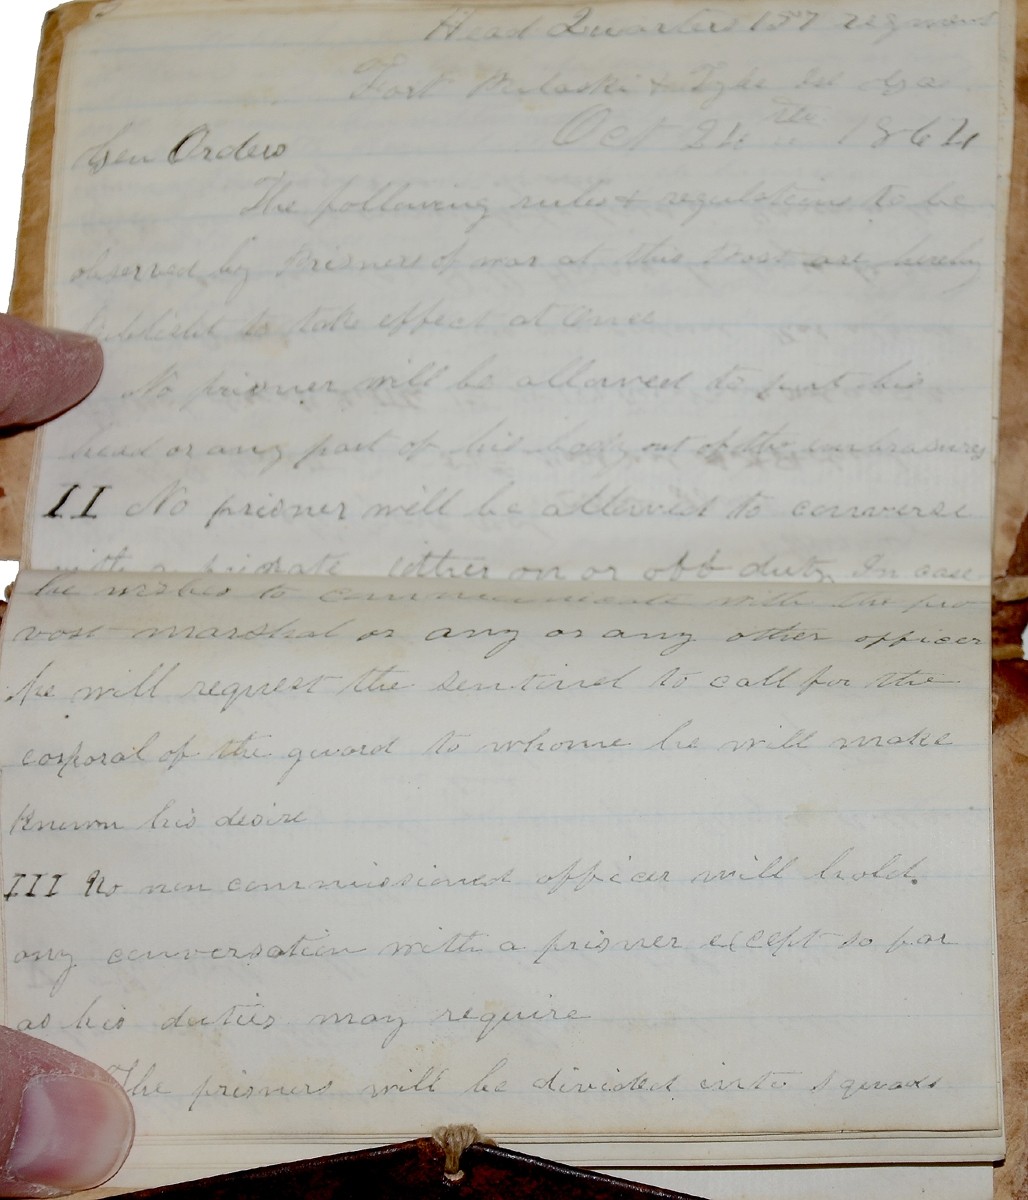 Head Quarters 157 regment
Fort Pulaski & Tybe Isl Ga
Oct 24 th 1864
Gen Orders
The following rules & regulations to be
observed by Prisners of war at this Post are hereby
to take effect at once
No prisner will be allowed to put his
head or any part of his body out of the embrasures
II No prisner will be allowed to converse
with a private either on or off duty In case
he wishes to communicate with the pro
vost marshal or any or any other officer
he will request the sentinel to call for the
corporal of the guard to whome he will make
known his desire
III No non commissioned officer will hold
any conversation with a prisner except so far
as his duties may require
The prisners will be divided into squads